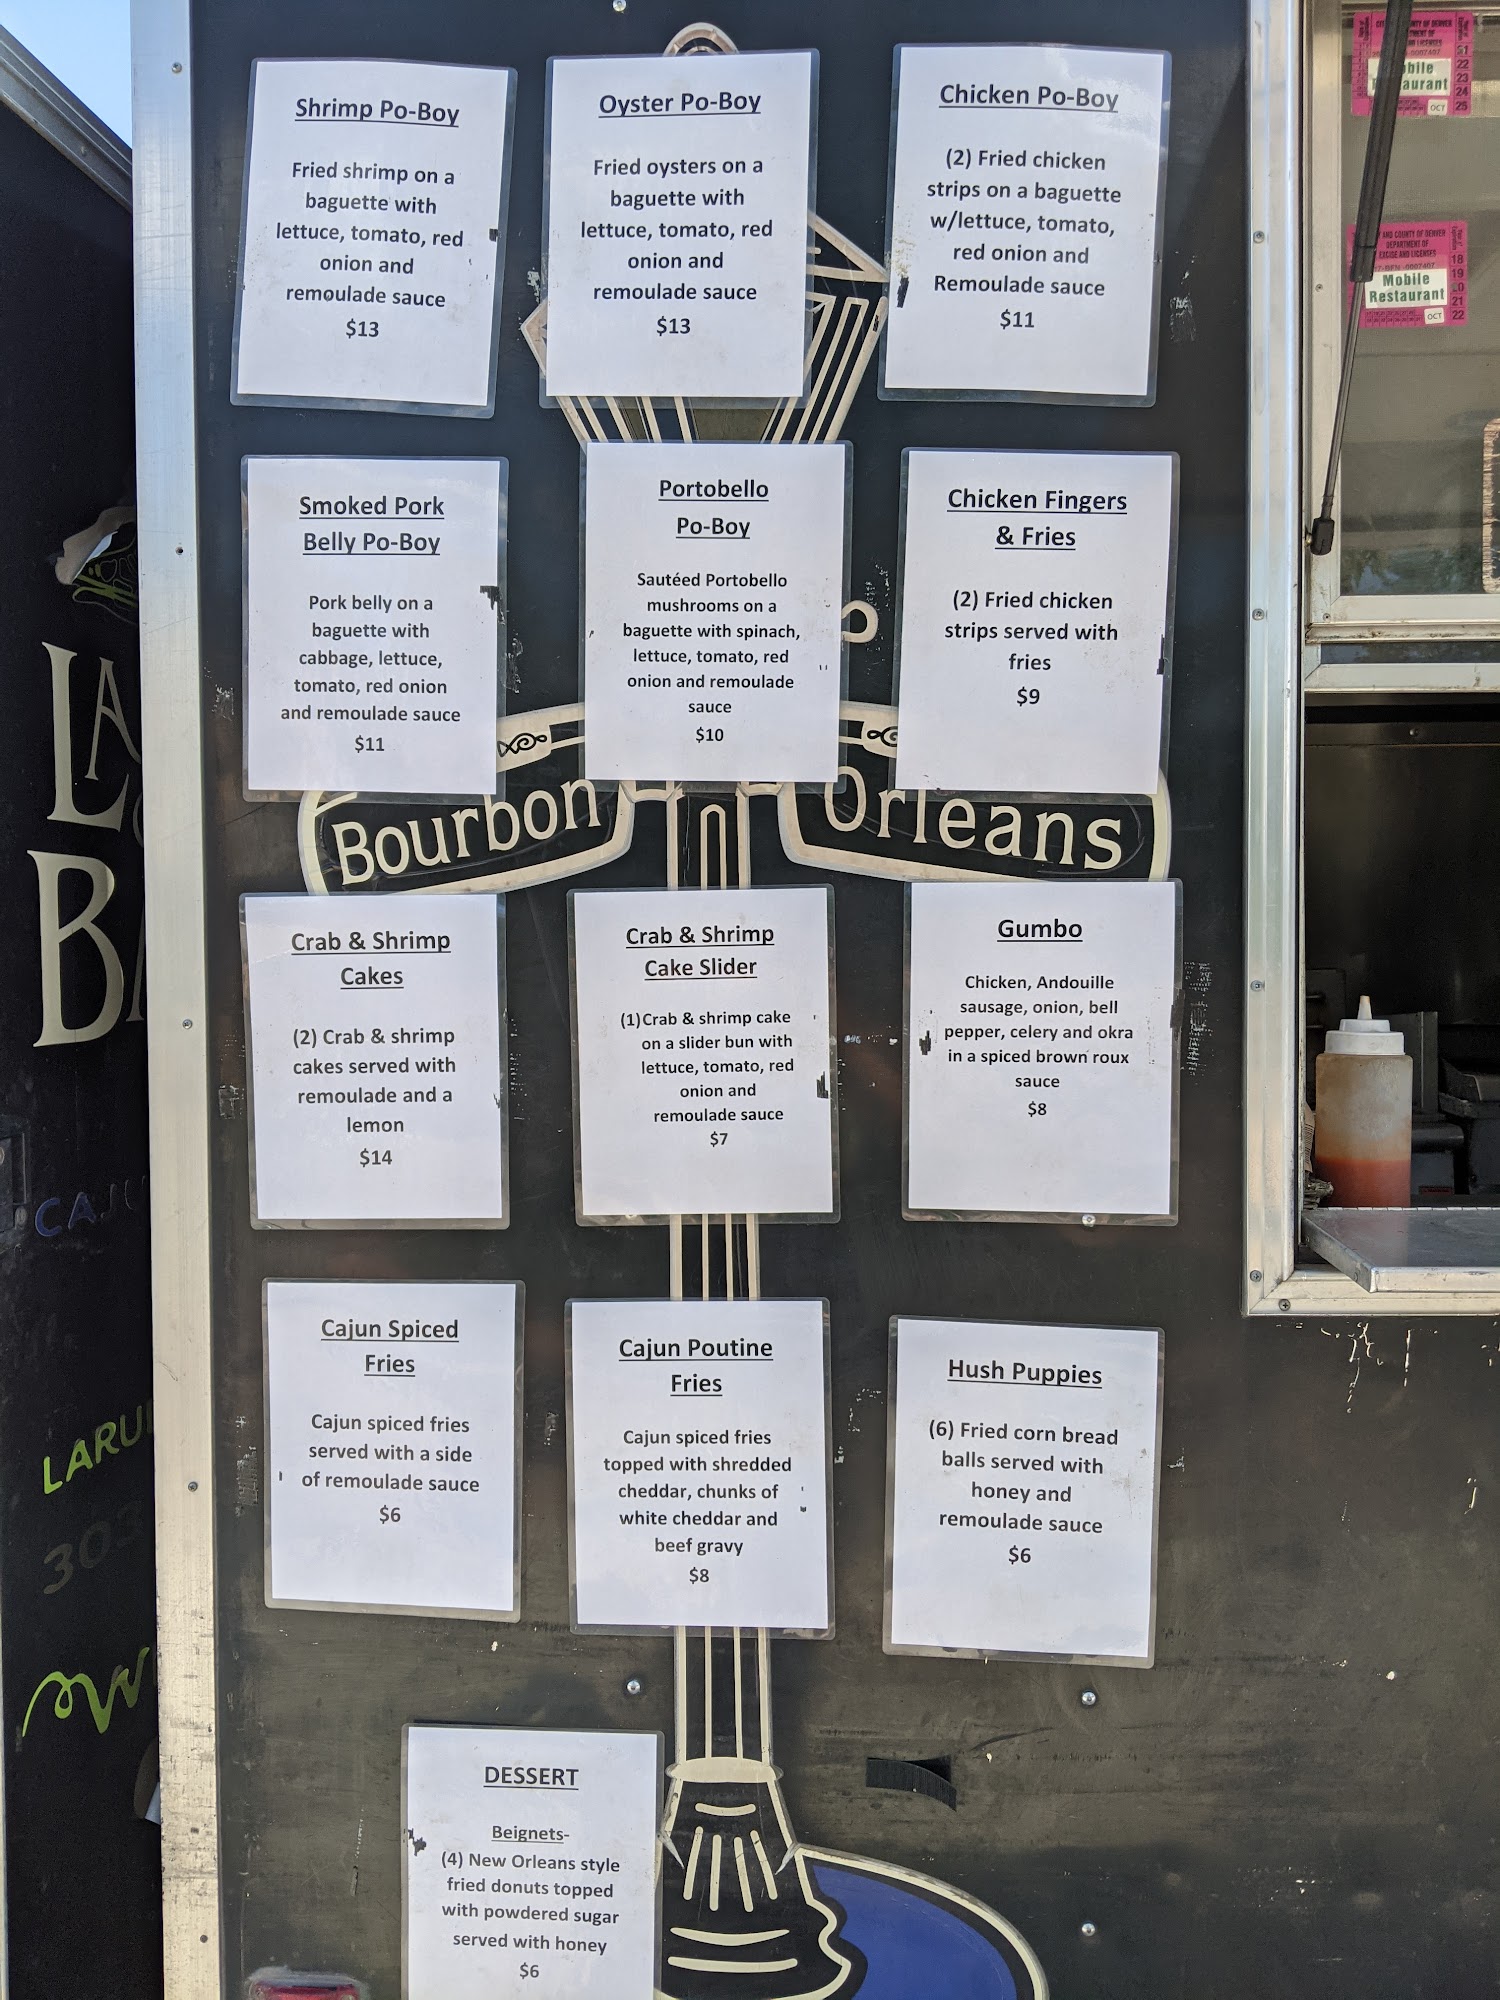 Shrimp Po-Boy
Fried shrimp on a
baguette with
lettuce, tomato, red
onion and
remoulade sauce
$13
Oyster Po-Boy
Fried oysters on a
baguette with
lettuce, tomato, red
onion and
remoulade sauce
$13
Chicken Po-Boy
(2) Fried chicken
strips on a baguette
w/lettuce, tomato,
red onion and
Remoulade sauce
$11
Smoked Pork
Belly Po-Boy
Pork belly on a
baguette with
cabbage, lettuce,
tomato, red onion
and remoulade sauce
$11
Portobello
Po-Boy
Sautéed Portobello
mushrooms on a
baguette with spinach,
lettuce, tomato, red
onion and remoulade
sauce
$10
Chicken Fingers
& Fries
(2) Fried chicken
strips served with
fries
$9
Bourbon
Orleans
Crab & Shrimp
Cakes
(2) Crab & shrimp
cakes served with
remoulade and a
lemon
$14
Crab & Shrimp
Cake Slider
(1)Crab & shrimp cake
on a slider bun with
lettuce, tomato, red
onion and
remoulade sauce
$7
Gumbo
Chicken, Andouille
sausage, onion, bell
pepper, celery and okra
in a spiced brown roux
sauce
$8
Cajun Spiced
Fries
Cajun spiced fries
served with a side
of remoulade sauce
$6
Cajun Poutine
Fries
Cajun spiced fries
topped with shredded
cheddar, chunks of
white cheddar and
beef gravy
$8
Hush Puppies
(6) Fried corn bread
balls served with
honey and
remoulade sauce
$6
DESSERT
Beignets-
(4) New Orleans style
fried donuts topped
with powdered sugar
served with honey
$6
LA
BA
CAJU
LARU
303
W
22
23
24
25
OCT
AND COUNTY OF DENVER
DEPARTMENT OF
EXCISE AND LICENSES
Mobile
Restaurant
18
19
21
22
OCT